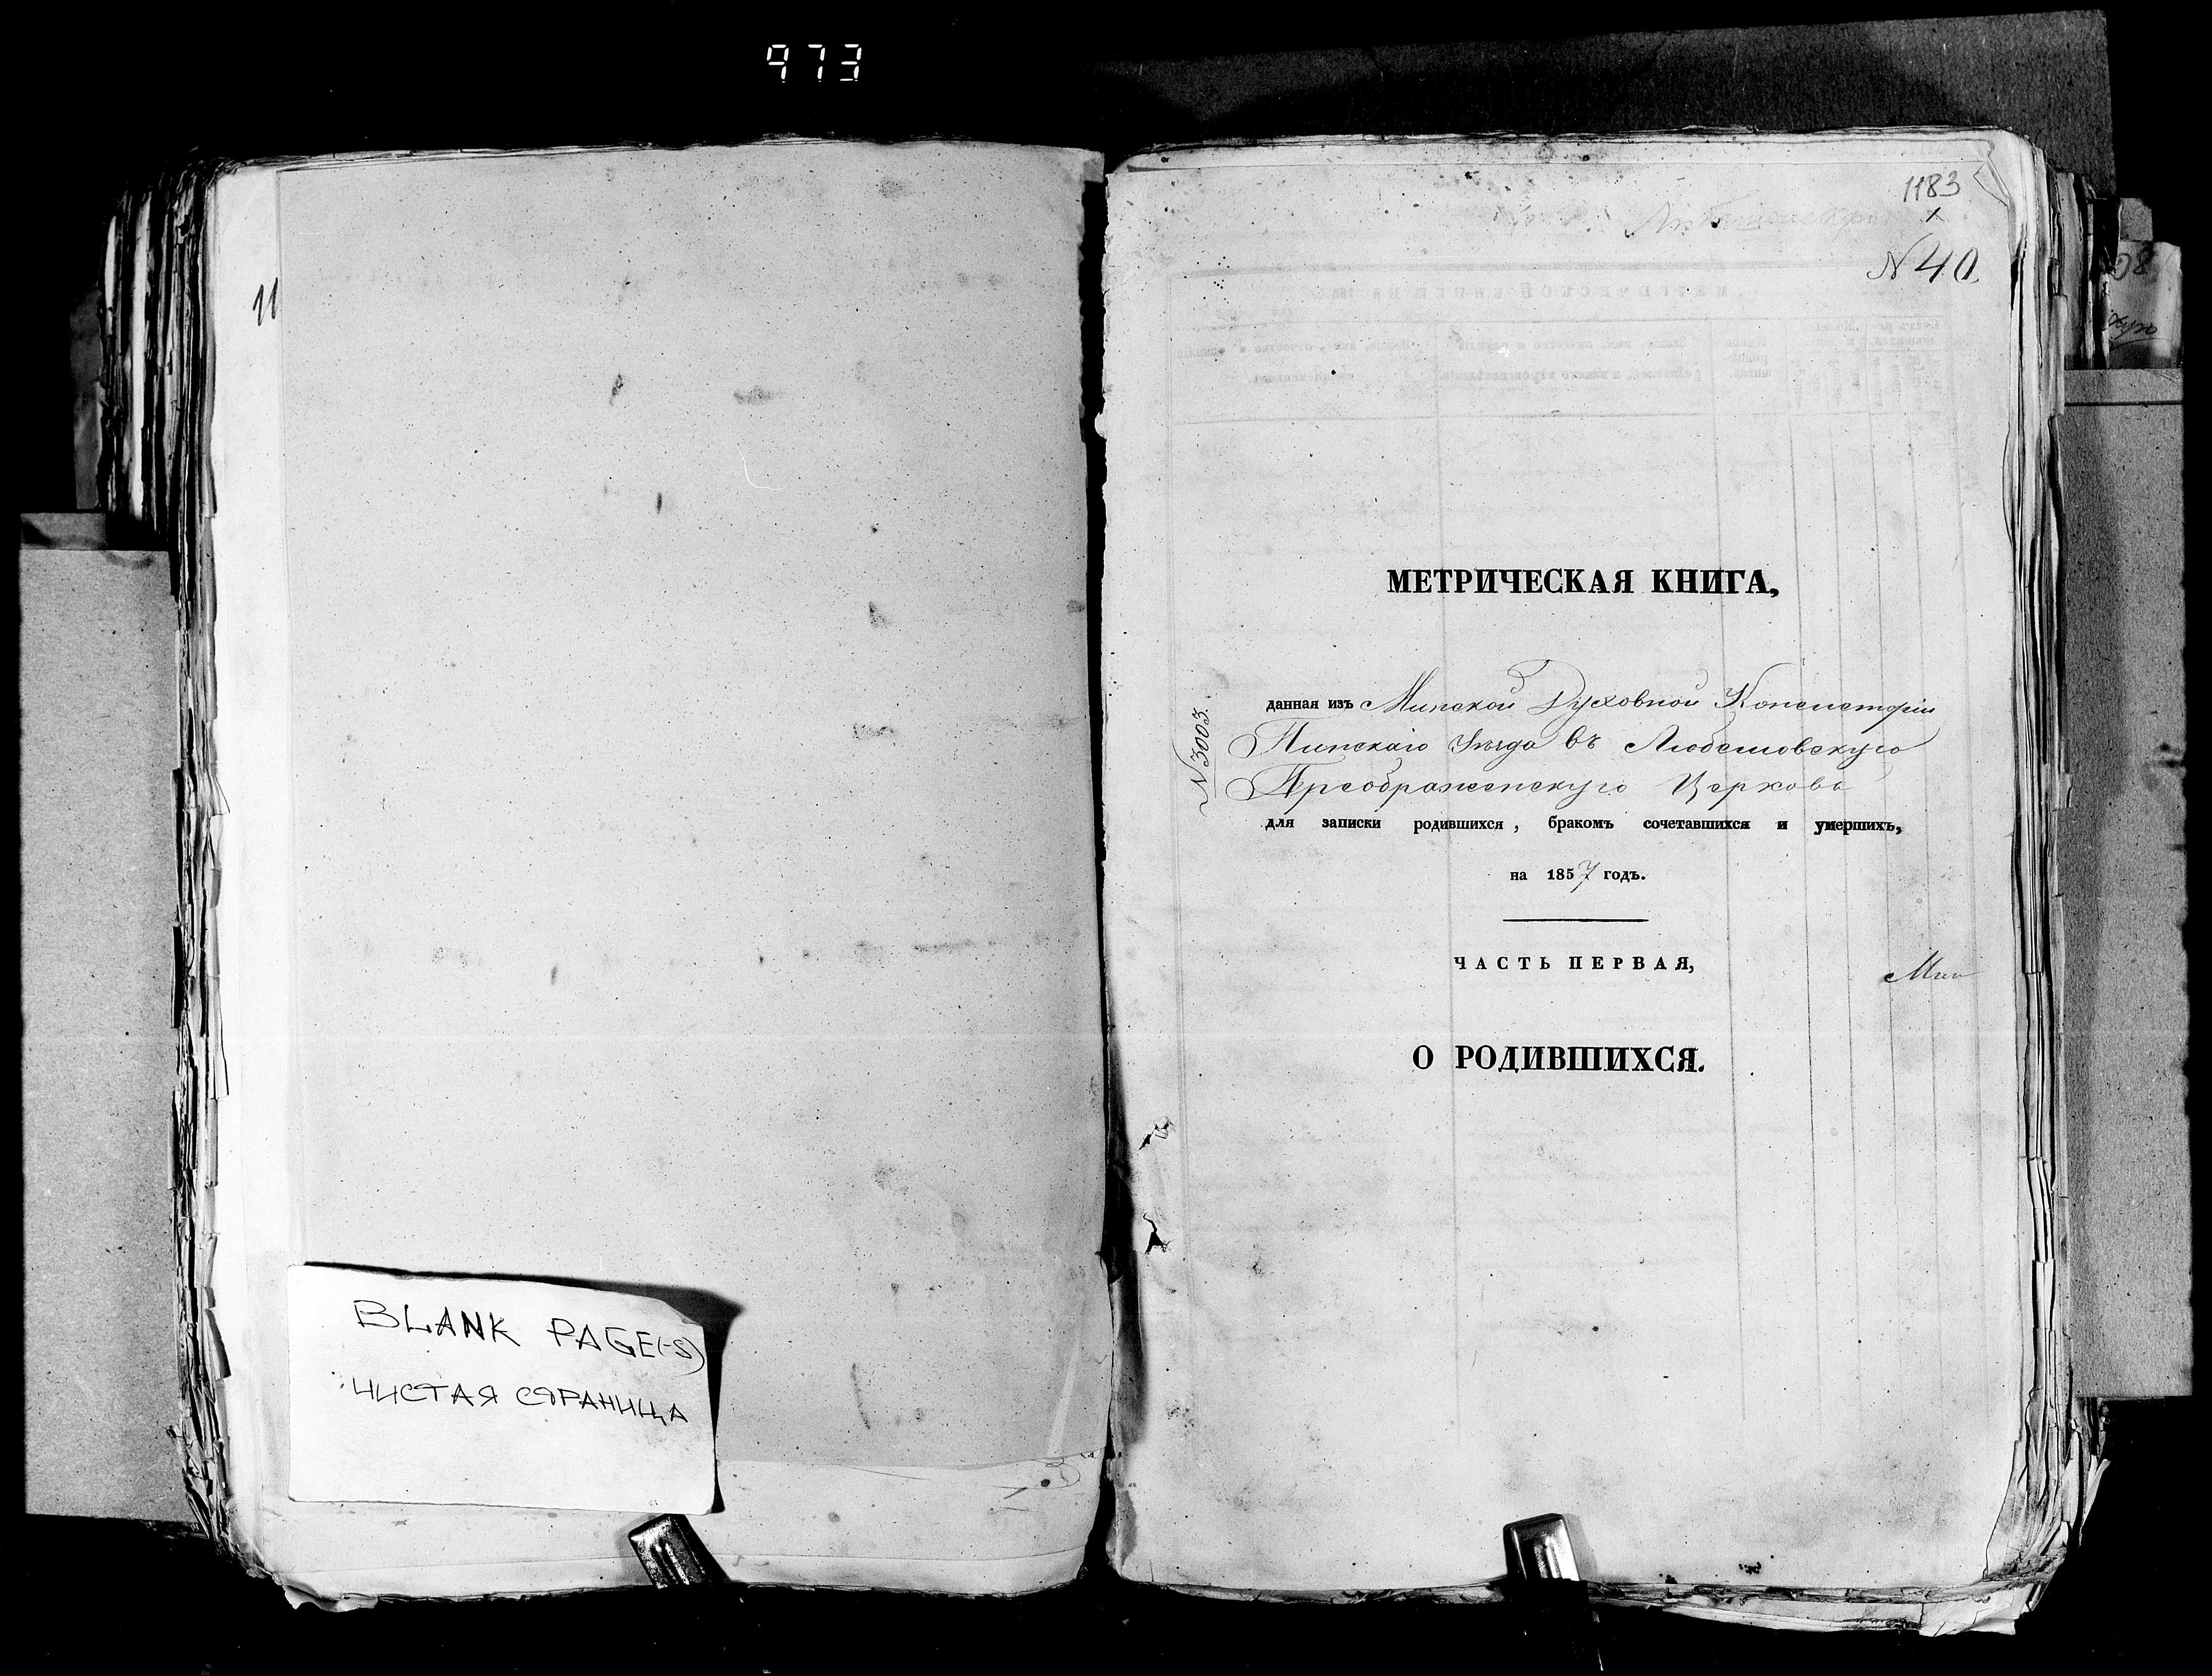 973
11
BLANK PAGE(-S)
ЧИСТАЯ СТРАНИЦА
1183
N 40
МЕТРИЧЕСКАЯ КНИГА,
N 3003.
данная изъ Минской Духовной Консисторіи
Пинскаго Уѣзда въ Любешовскую
Преображенскую Церковь
для записки родившихся, бракомъ сочетавшихся и умершихъ,
на 1857 годъ.
ЧАСТЬ ПЕРВАЯ,
Мин
О РОДИВШИХСЯ.